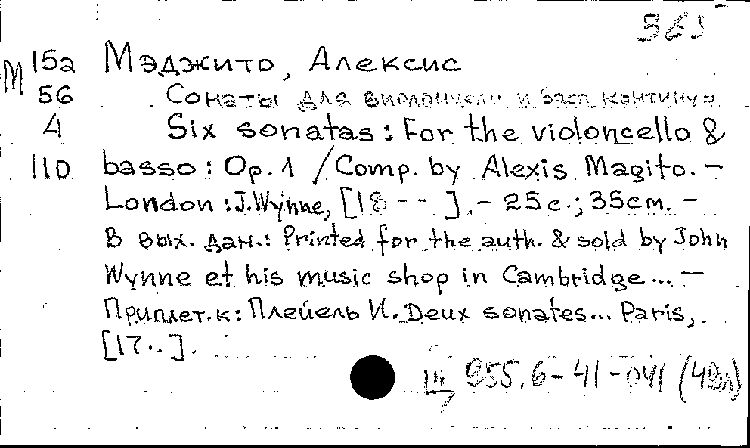 563
М 15а Мэджито, Алексис
56 Сонаты для виолончели и басс континуо
4 Six sonatas: For the violoncello &
110 basso: Op. 1 / Comp. by Alexis Magito. –
London: J. Wynne, [18 - - ]. – 25 с.; 35cm. –
В вых. дан.: Printed for the auth. & sold by John
Wynne et his music shop in Cambridge... –
Приплет. к: Плейель И. Deux sonates... Paris,
[17..].
Щ 955.6-41-041 (49л)